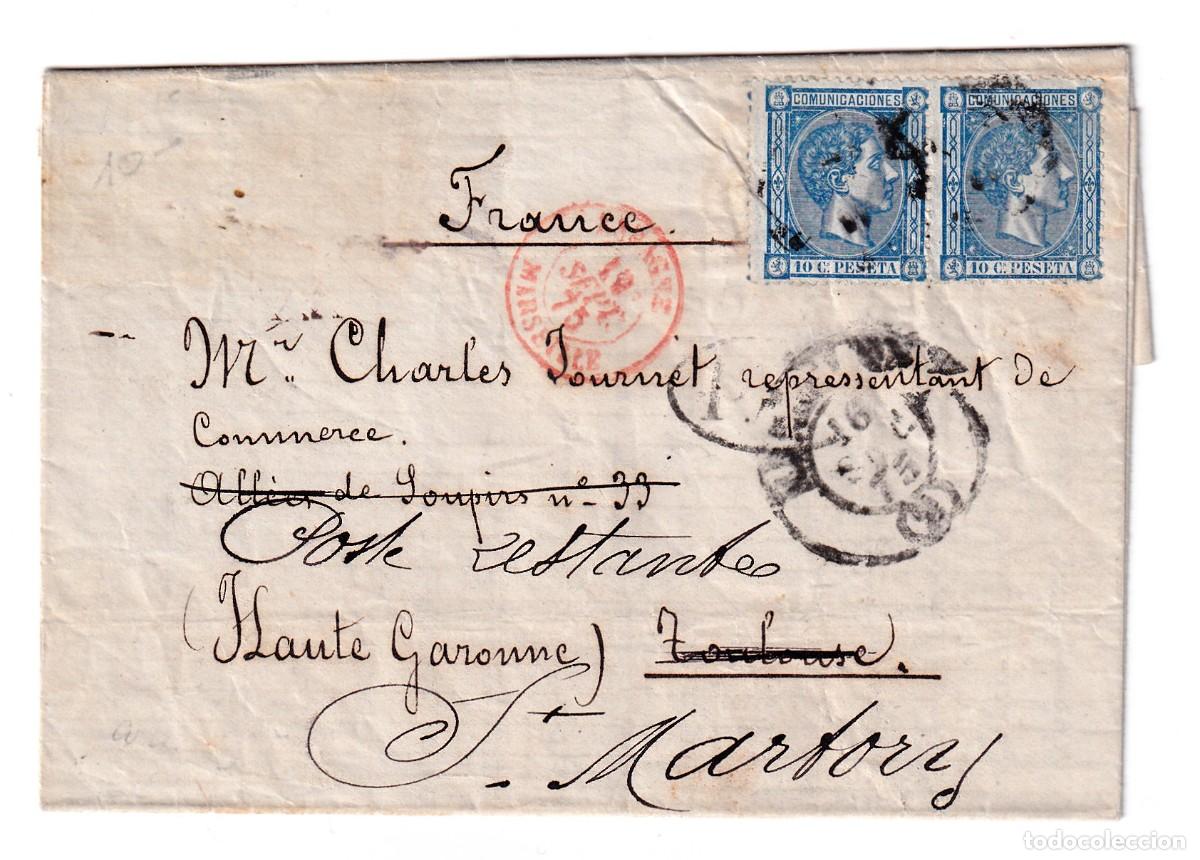 COMUNICACIONES COMUNICACIONES
10 Cs PESETA 10 Cs PESETA
10
France.
18
SEPT
75
MARSEILLE
Mr. Charles Journet repressentant de
Commerce.
Allées de Soupirs nº 33
Poste restante
(Haute Garonne) Toulouse.
St. Martory
16
todocoleccion